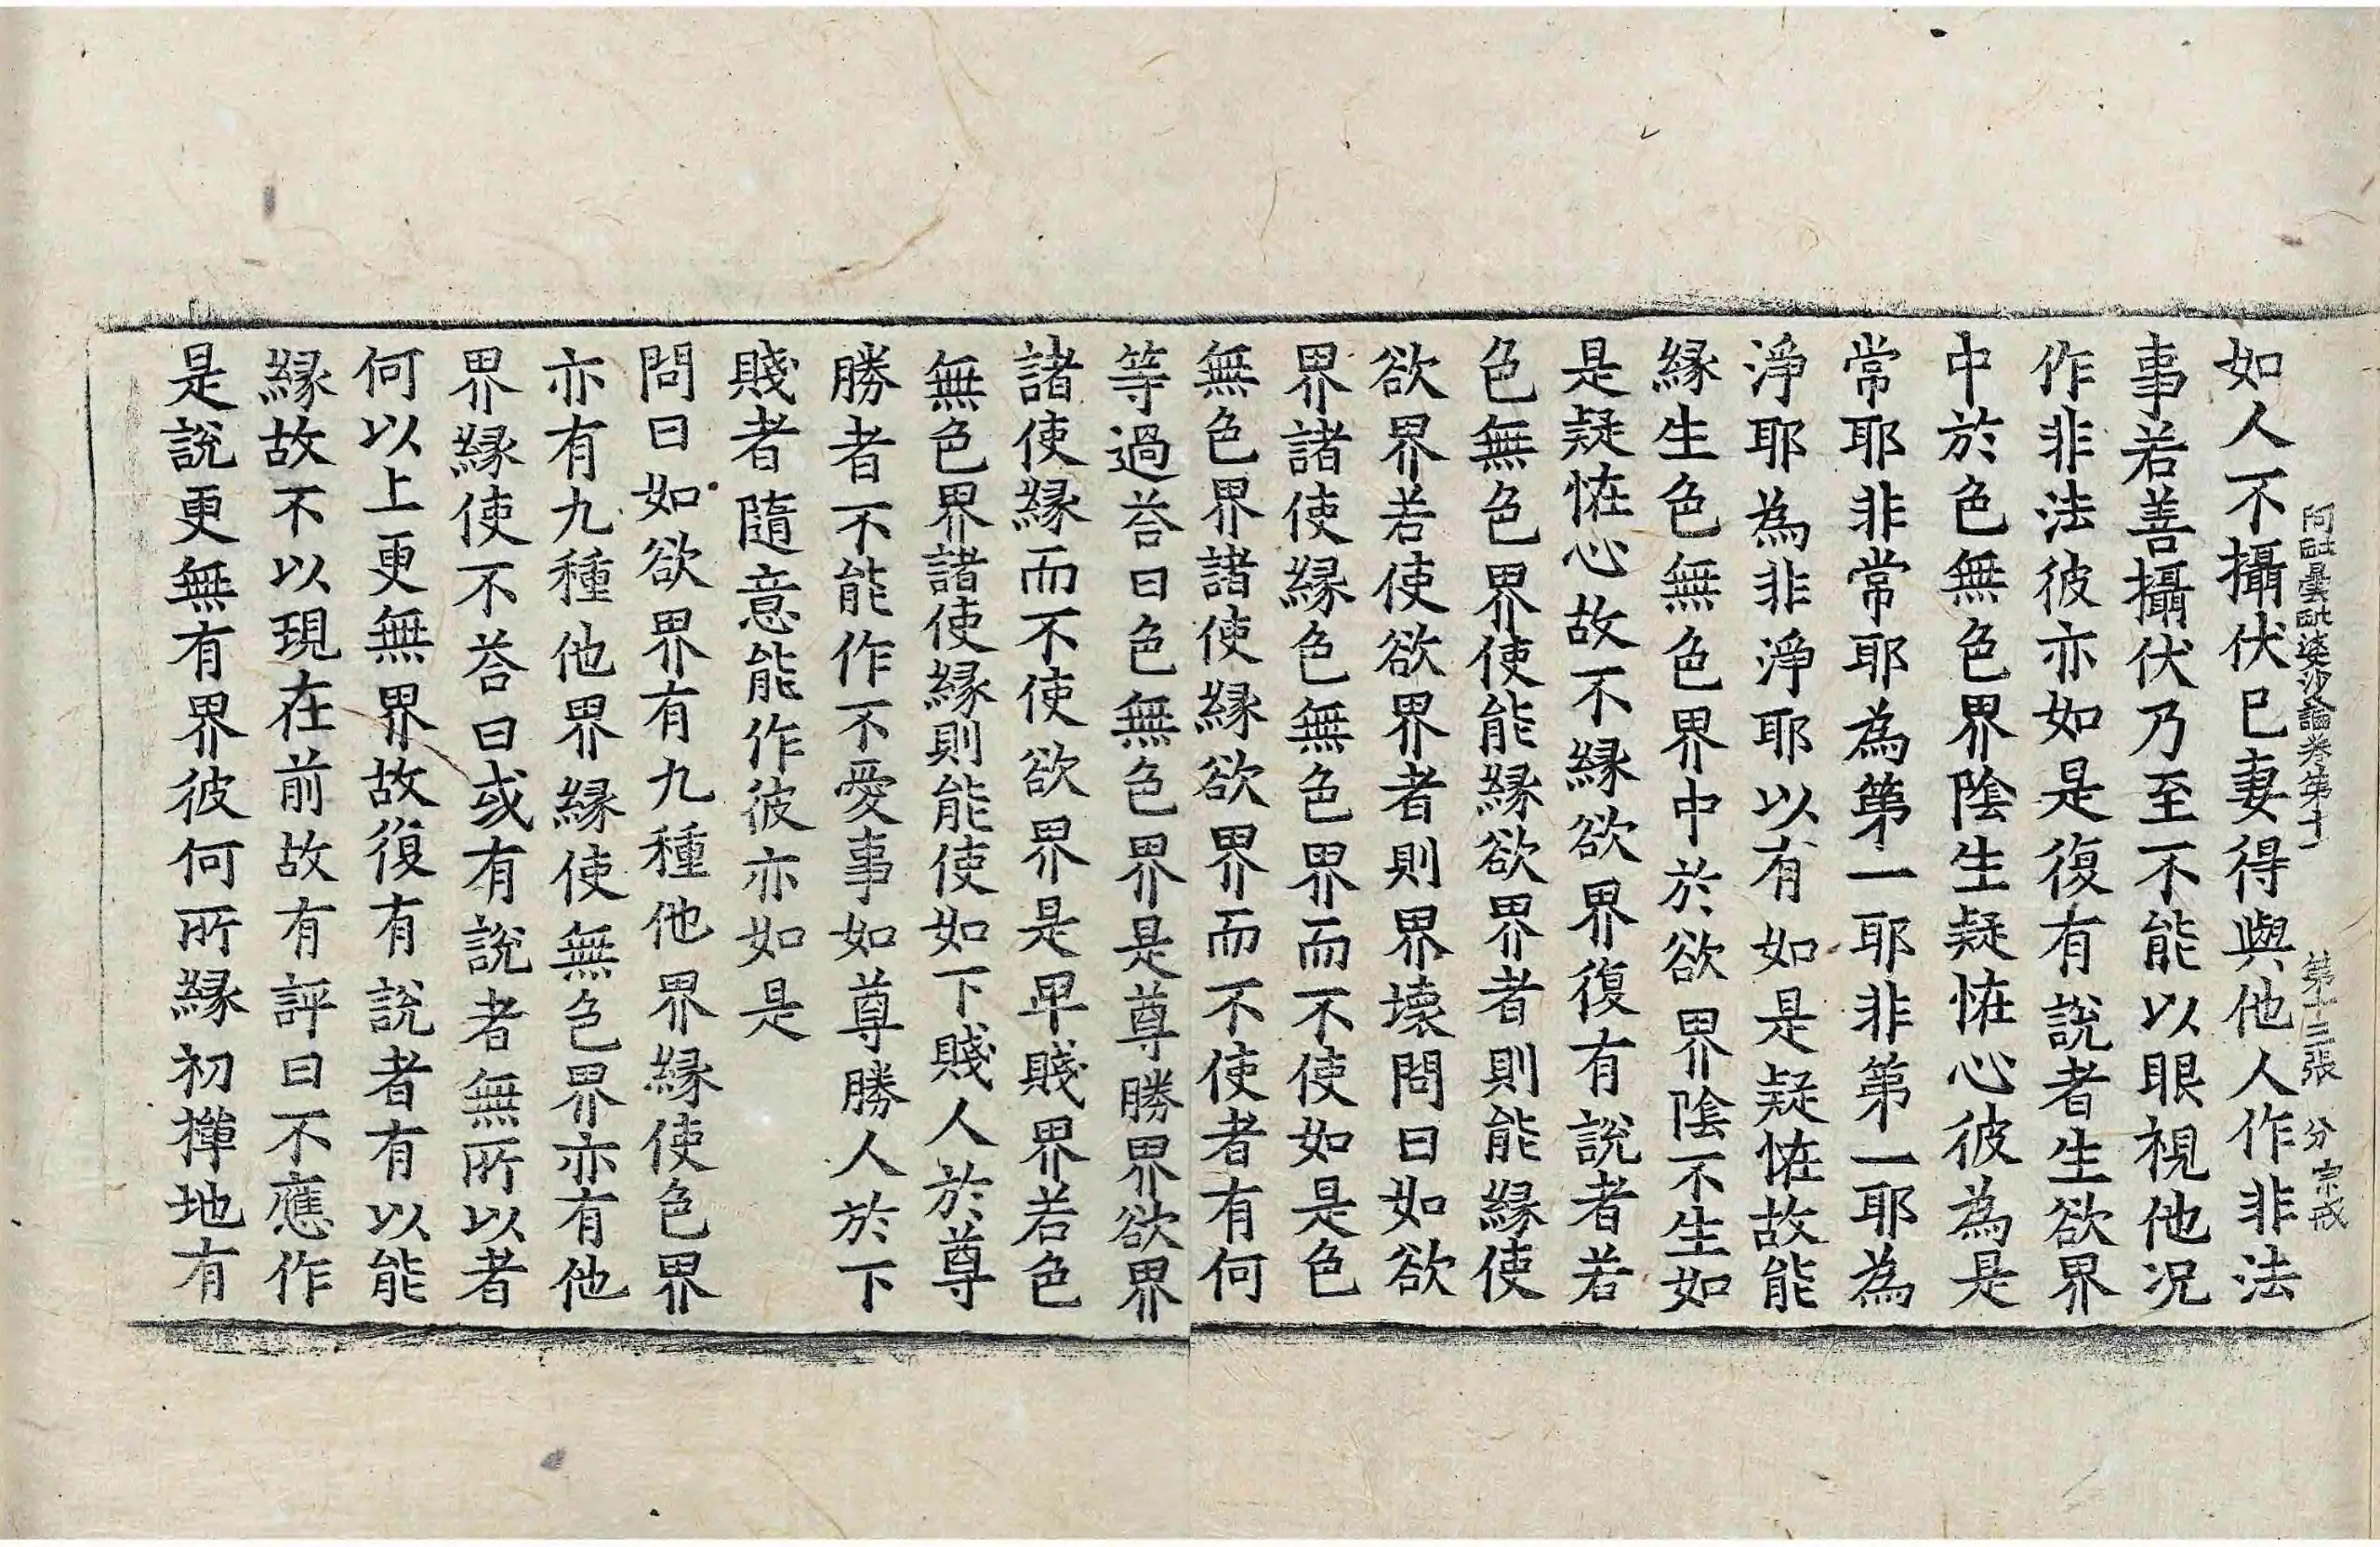 阿毗曇毗婆沙論卷第十 第十三張 分 宗戒
如人不攝伏已妻得與他人作非法
事若善攝伏乃至不能以眼視他况
作非法彼亦如是復有說者生欲界
中於色無色界陰生疑恠心彼為是
常耶非常耶為第一耶非第一耶為
淨耶為非淨耶以有如是疑恠故能
緣生色無色界中於欲界陰不生如
是疑恠心故不緣欲界復有說者若
色無色界使能緣欲界者則能緣使
欲界若使欲界者則界壞問曰如欲
界諸使緣色無色界而不使如是色
無色界諸使緣欲界而不使者有何
等過荅曰色無色界是尊勝界欲界
諸使緣而不使欲界是卑賤界若色
無色界諸使緣則能使如下賤人於尊
勝者不能作不愛事如尊勝人於下
賤者隨意能作彼亦如是
問曰如欲界有九種他界緣使色界
亦有九種他界緣使無色界亦有他
界緣使不荅曰或有說者無所以者
何以上更無界故復有說者有以能
緣故不以現在前故有評曰不應作
是說更無有界彼何所緣初禪地有